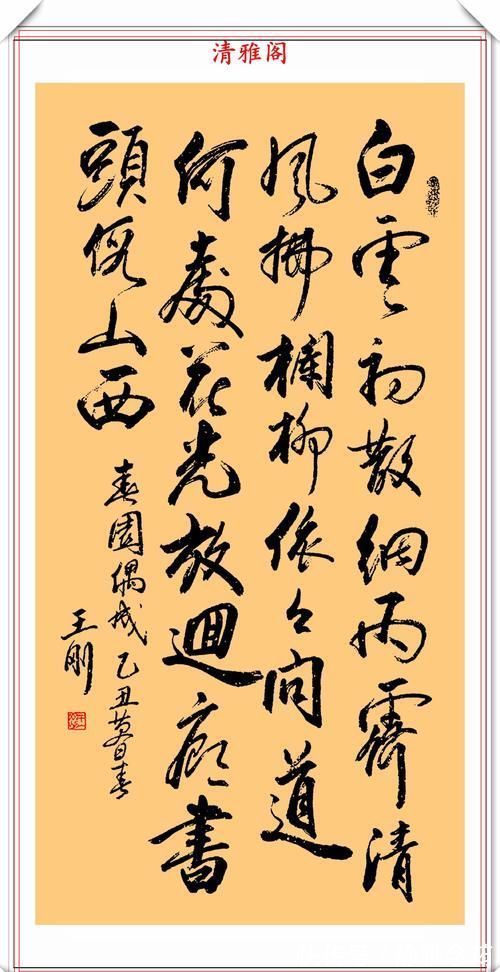 清雅阁
白雲初散細雨霽清
風拂欄柳依々問道
何處花光放迴廊書
頭假山西
春園偶成 乙丑暮春
王剛